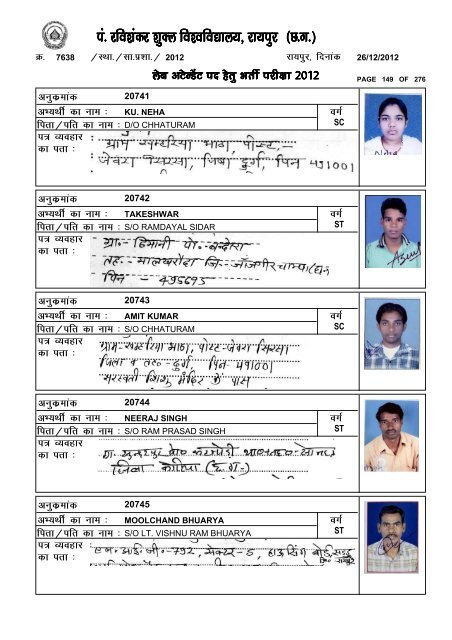 पं. रविशंकर शुक्ल विश्वविद्यालय, रायपुर (छ.ग.)
क्र. 7638 /स्था./सा.प्रशा./ 2012 रायपुर, दिनांक 26/12/2012
लेब अटेन्डेंट पद हेतु भर्ती परीक्षा 2012
PAGE 149 OF 276
अनुकमांक 20741
अभ्यर्थी का नाम : KU. NEHA वर्ग
पिता/पति का नाम : D/O CHHATURAM SC
पत्र व्यवहार : ग्राम भाठा, पोस्ट,-
का पता : जेवरा सिरसा, जिला दुर्ग, पिन 491001
अनुकमांक 20742
अभ्यर्थी का नाम : TAKESHWAR वर्ग
पिता/पति का नाम : S/O RAMDAYAL SIDAR ST
पत्र व्यवहार ग्रा.-
का पता : तह.- मालखरौदा जि.- जाँजगीर चाम्पा
पिन - 495695
अनुकमांक 20743
अभ्यर्थी का नाम : AMIT KUMAR वर्ग
पिता/पति का नाम : S/O CHHATURAM SC
पत्र व्यवहार ग्राम- भाठा, पोस्ट-जेवरा सिरसा
का पता : जिला व तह०-दुर्ग, पिन 491001
सरस्वती शिशु मंदिर के पास
अनुकमांक 20744
अभ्यर्थी का नाम : NEERAJ SINGH वर्ग
पिता/पति का नाम : S/O RAM PRASAD SINGH ST
पत्र व्यवहार
का पता : ग्रा.
जिला कोरिया (छ.ग.)
अनुकमांक 20745
अभ्यर्थी का नाम : MOOLCHAND BHUARYA वर्ग
पिता/पति का नाम : S/O LT. VISHNU RAM BHUARYA ST
पत्र व्यवहार : एम.आई.जी.-792, सेक्टर-5, हाऊसिंग बोर्ड
का पता :